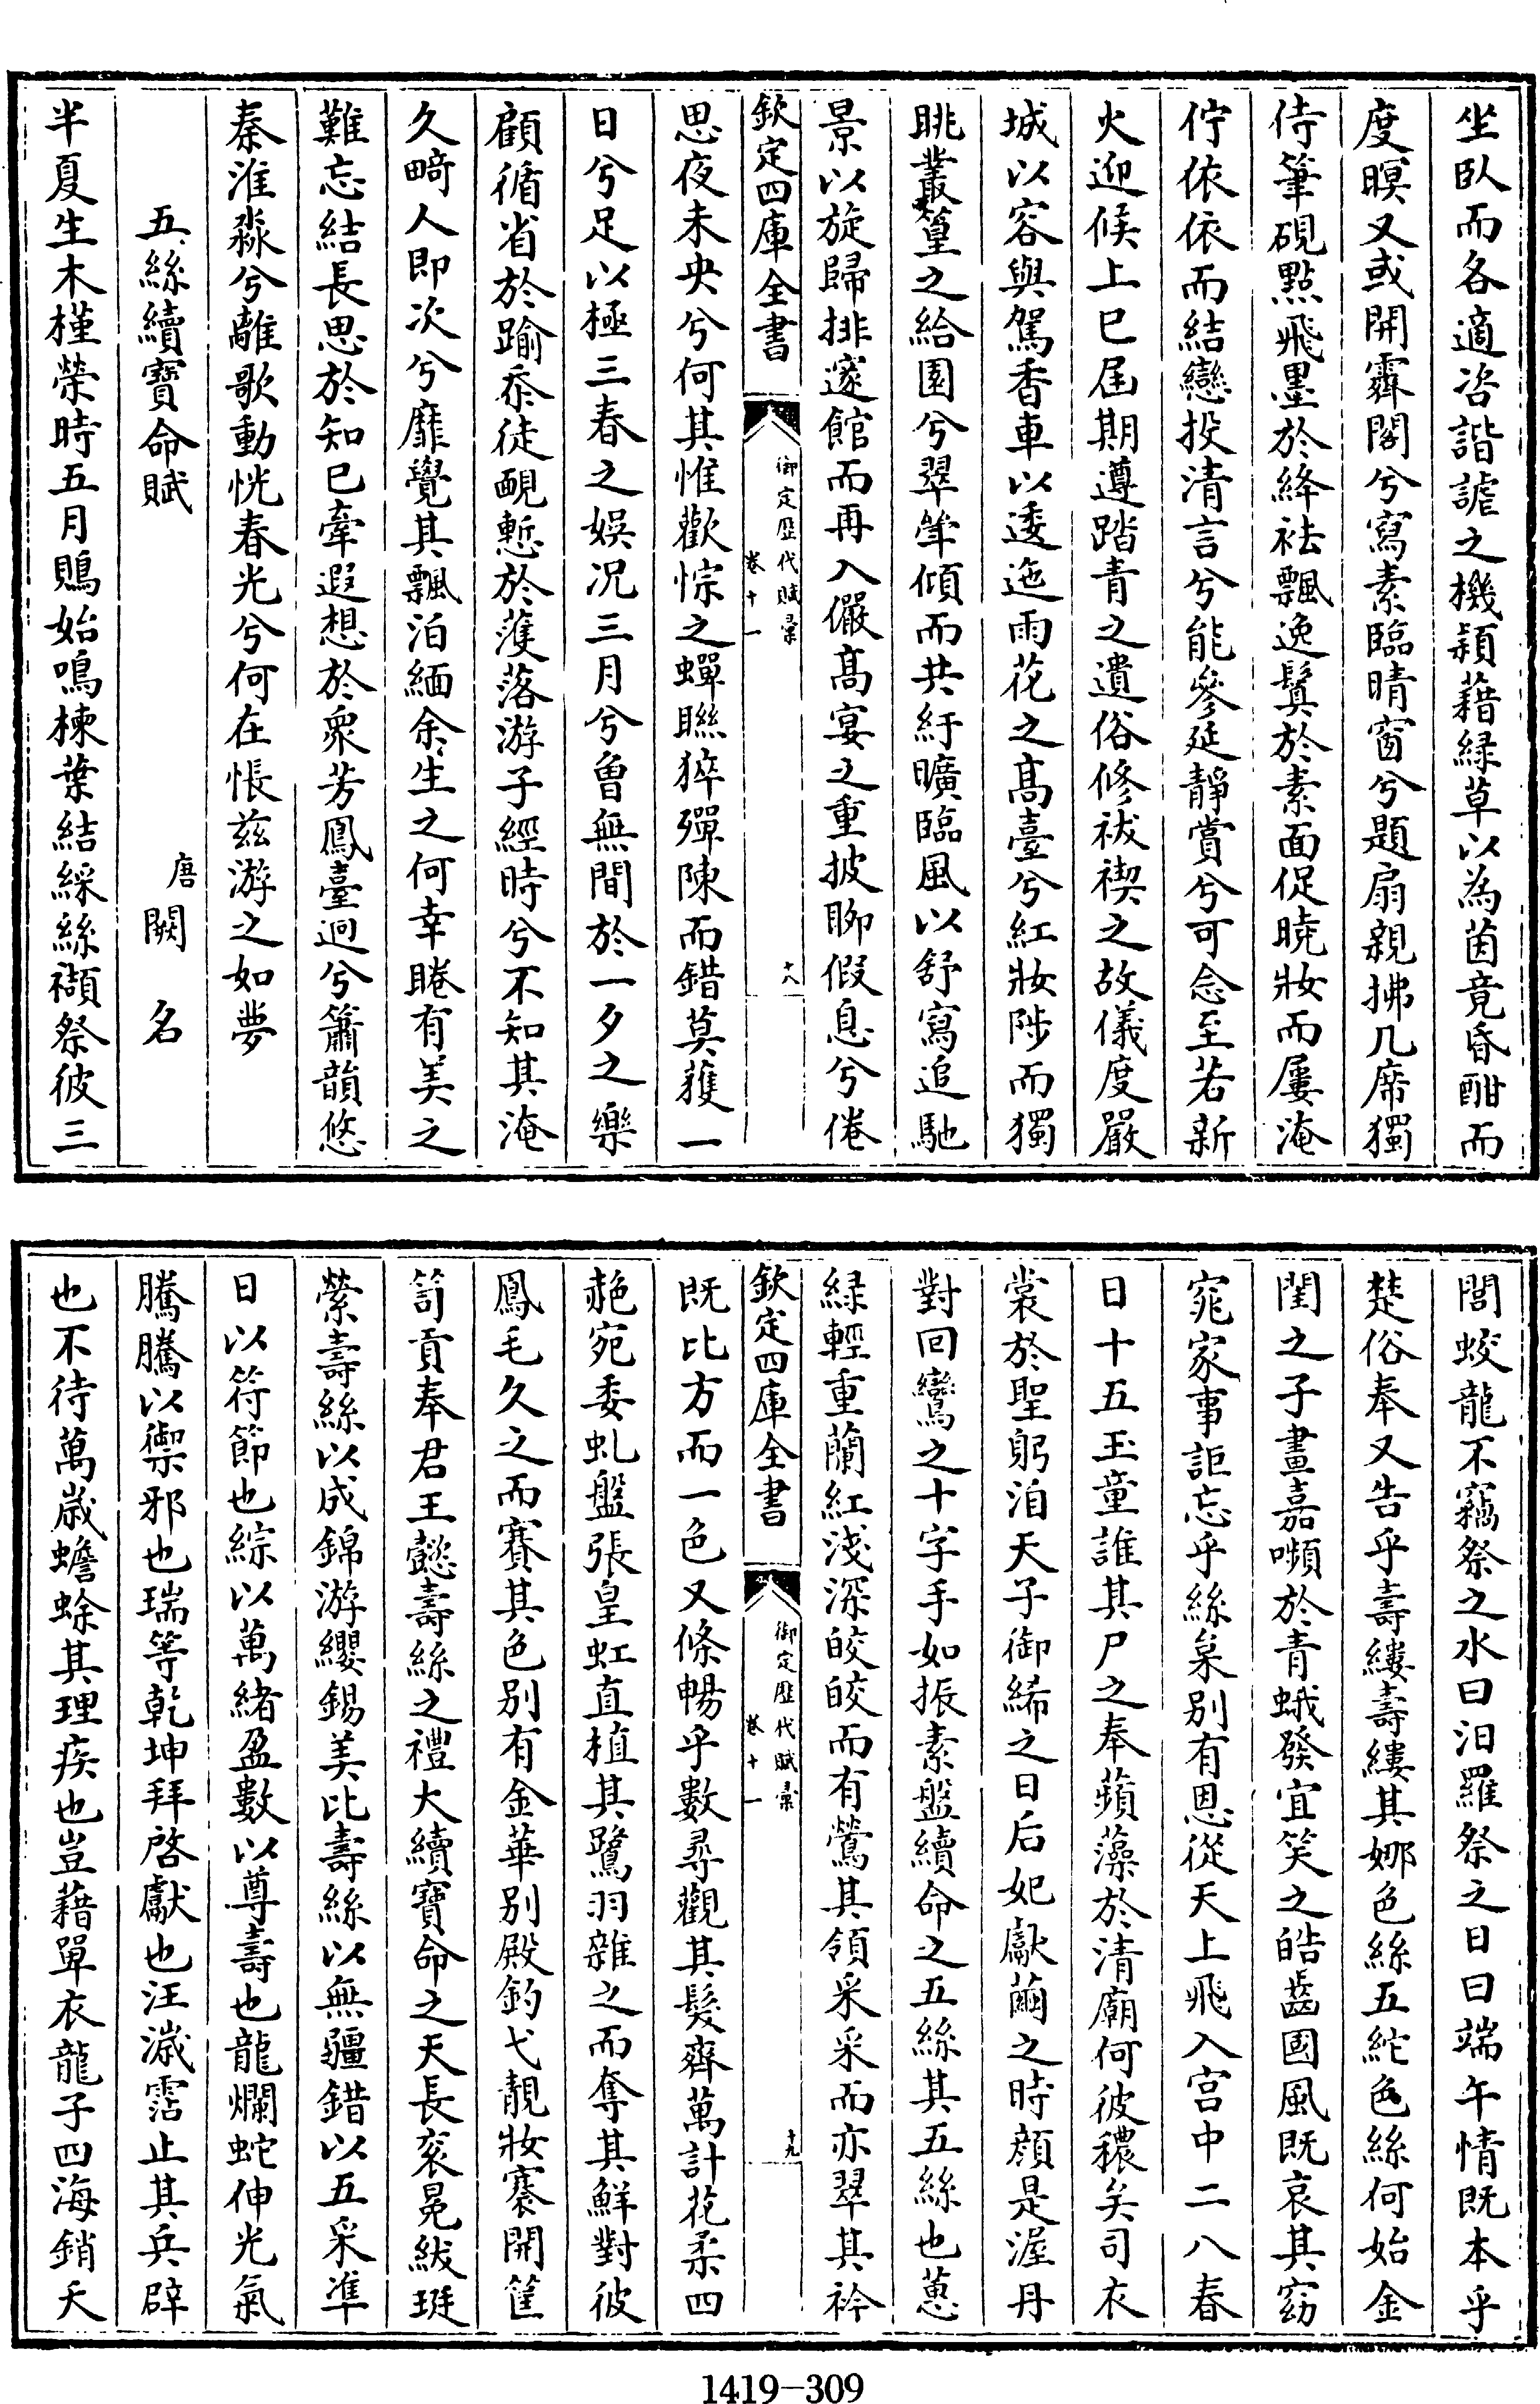 坐臥而各適咨諧謔之機穎藉緑草以為茵竟昏酣而
度暝又或開霽閣兮寫素臨晴窗兮題扇親拂几席獨
侍筆硯點飛墨於絳袪飄逸鬂於素面促曉妝而屢淹
佇依依而結戀投清言兮能參延靜賞兮可念至若新
火迎候上巳屆期遵踏青之遺俗修祓禊之故儀度嚴
城以容與駕香車以逶迤雨花之髙臺兮紅妝陟而獨
眺叢篁之給園兮翠斝傾而共紆曠臨風以舒寫追馳
景以旋歸排邃館而再入儼髙宴之重披聊假息兮倦
欽定四庫全書
御定歴代賦彙
卷十一
十八
思夜未央兮何其惟歡悰之蟬聯猝殫陳而錯莫蒦一
日兮足以極三春之娛况三月兮曽無間於一夕之樂
顧循省於踰忝徒靦慙於蒦落游子經時兮不知其淹
久畸人即次兮靡覺其飄泊緬余生之何幸睠有美之
難忘結長思於知已牽遐想於衆芳鳳臺迥兮簫韻悠
秦淮淼兮離歌動恍春光兮何在悵兹游之如夢
五絲續寳命賦
唐闕名
半夏生木槿榮時五月鵙始鳴楝葉結綵絲襭祭彼三
閭蛟龍不竊祭之水曰汨羅祭之日曰端午情既本乎
楚俗奉又告乎壽縷壽縷其娜色絲五紽色絲何始金
閨之子畫嘉嚬於青蛾發宜笑之皓齒國風既哀其窈
窕家事詎忘乎絲枲别有恩從天上飛入宫中二八春
日十五玉童誰其尸之奉蘋藻於清廟何彼穠矣司衣
裳於聖躬洎天子御絺之日后妃獻繭之時顔是渥丹
對回鸞之十字手如振素盤續命之五絲其五絲也蔥
緑輕重蘭紅淺深皎皎而有鶯其領采采而亦翠其衿
欽定四庫全書
御定歴代賦彙
卷十一
十九
既比方而一色又條暢乎數尋觀其髮齊萬計花柔四
赩宛委虬盤張皇虹直植其鷺羽雜之而奪其鮮對彼
鳳毛久之而賽其色别有金華别殿鈞弋靚妝褰開筐
笥貢奉君王懿壽絲之禮大續寳命之天長衮冕紱珽
縈壽絲以成錦游纓錫美比壽絲以無疆錯以五采凖
日以符節也綜以萬緒盈數以尊壽也龍爛蛇伸光氣
騰騰以禦邪也瑞等乾坤拜啓獻也汪濊霑止其兵辟
也不待萬歲蟾蜍其理疾也豈藉單衣龍子四海銷夭
1419-309